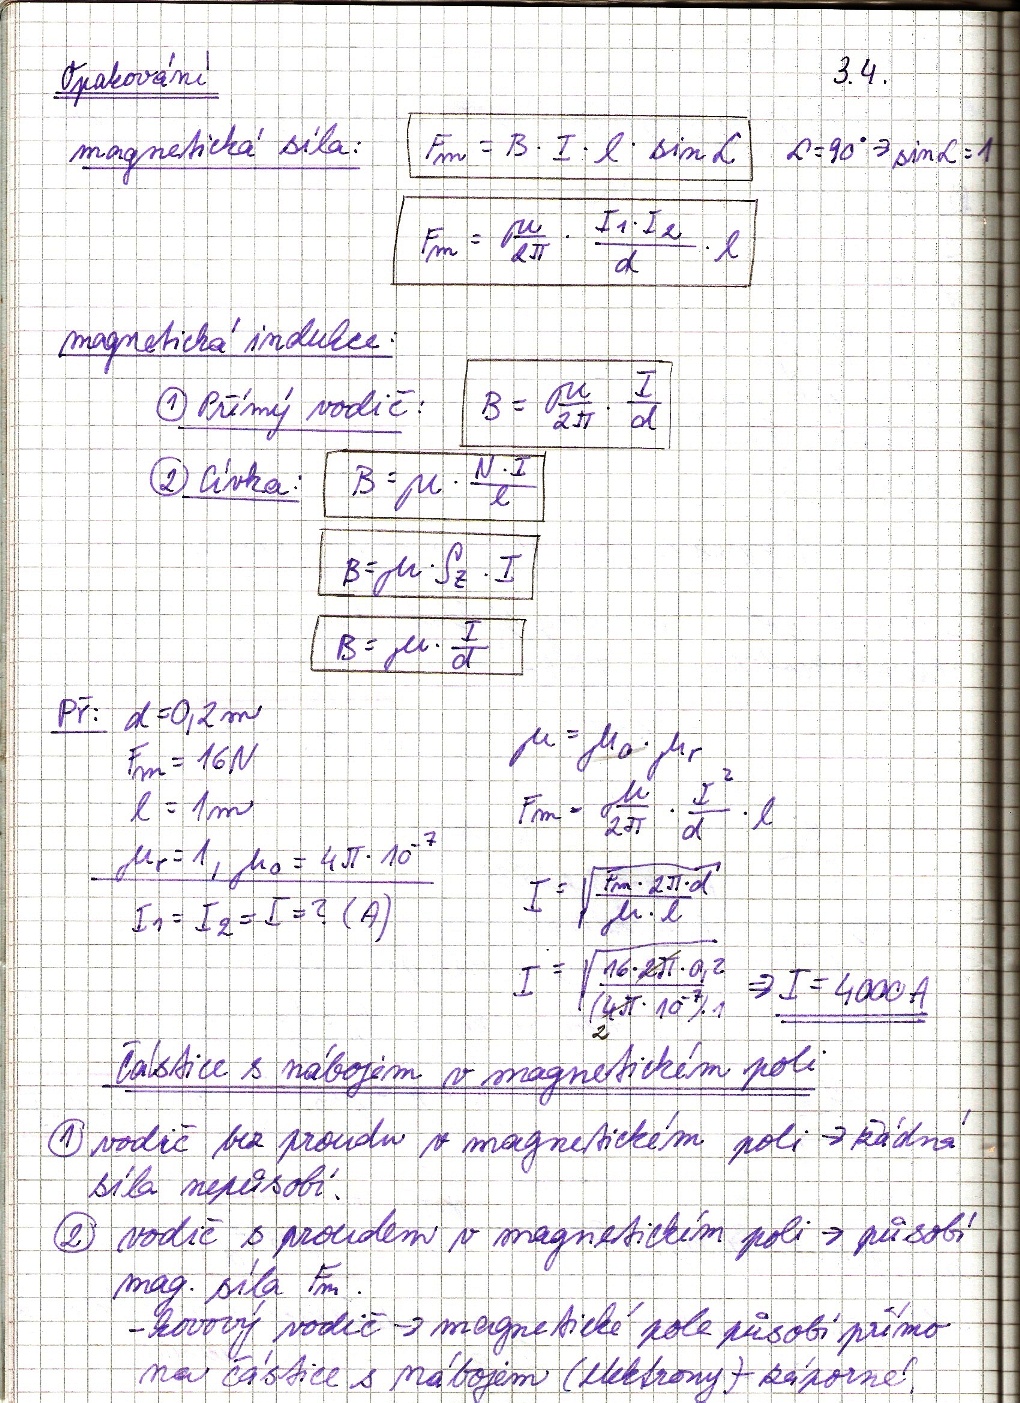 Opakování 3.4.
magnetická síla: Fm = B · I · l · sin α α=90° ⇒ sin α = 1
Fm = μ/2π · I1·I2/d · l
magnetická indukce:
① Přímý vodič: B = μ/2π · I/d
② Cívka: B = μ · N·I/l
B = μ · ρz · I
B = μ · I/d
Př: d = 0,2 m
Fm = 16N
l = 1m
μr = 1, μ0 = 4π·10⁻⁷
I1 = I2 = I = ? (A)
μ = μ0 · μr
Fm = μ/2π · I²/d · l
I = √(Fm·2π·d / μ·l)
I = √(16·2π·0,2 / (4π·10⁻⁷)·1) ⇒ I = 4000A
2
Částice s nábojem v magnetickém poli
① vodič bez proudu v magnetickém poli → žádná
síla nepůsobí.
② vodič s proudem v magnetickém poli → působí
mag. síla Fm.
- kovový vodič → magnetické pole působí přímo
na částice s nábojem (elektrony) - záporné.